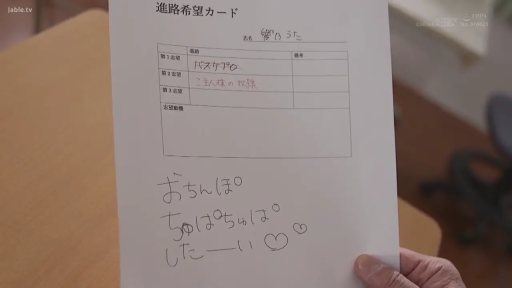 jable.tv
進路希望カード
氏名 響乃うた
進路 備考
第1志望 バスケプロ
第2志望
第3志望
志望動機
おちんぽ
ちゅぱちゅぱ
したーい♡♡